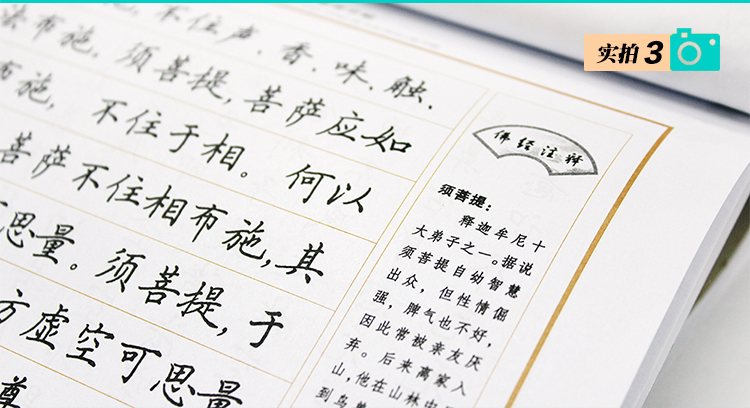 实拍3
施,不住声、香、味、触、
法布施。须菩提,菩萨应如
布施,不住于相。何以
菩萨不住相布施,其
思量。须菩提,于
方虚空可思量
尊
佛经注释
须菩提:
释迦牟尼十
大弟子之一。据说
须菩提自幼智慧
出众,但性情倔
强,脾气也不好,
因此常被亲友厌
弃。后来离家入
山,他在山林中
到鸟兽